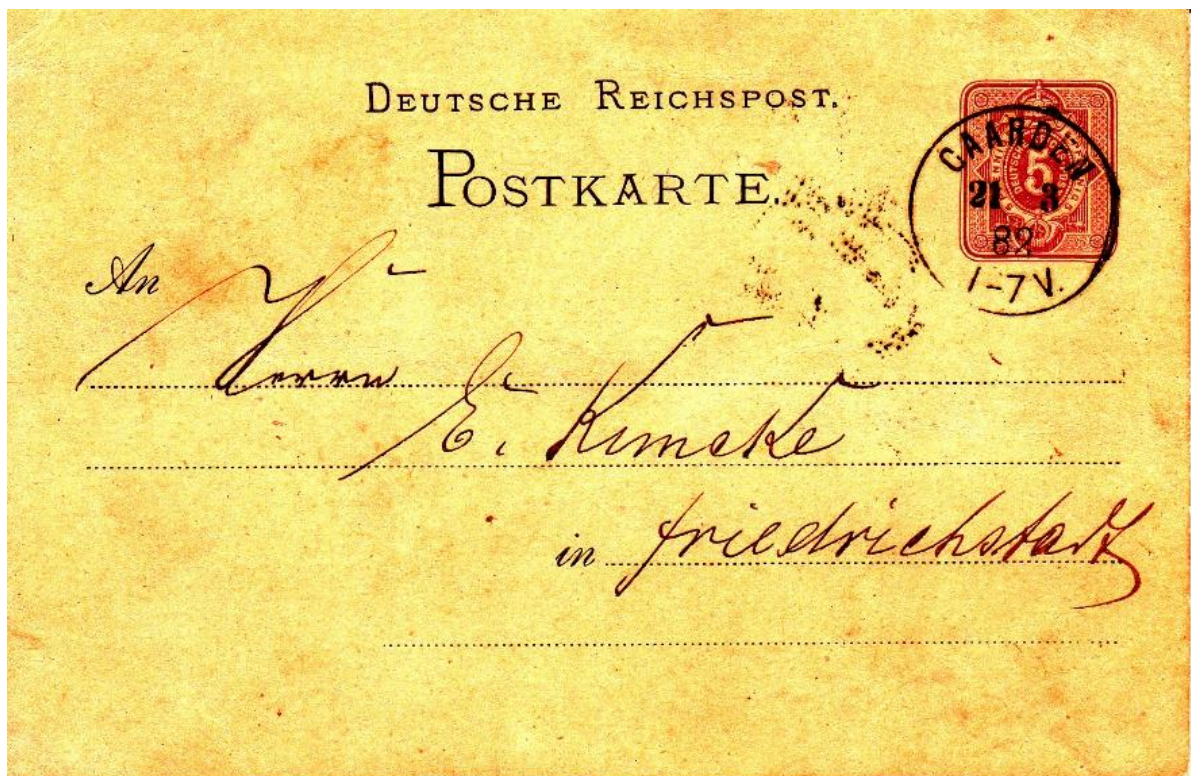 DEUTSCHE REICHSPOST.
POSTKARTE.
GAARDEN
21 3
82
1-7 V.
5
An
Herrn
E. Kumcke
in friedrichstadt